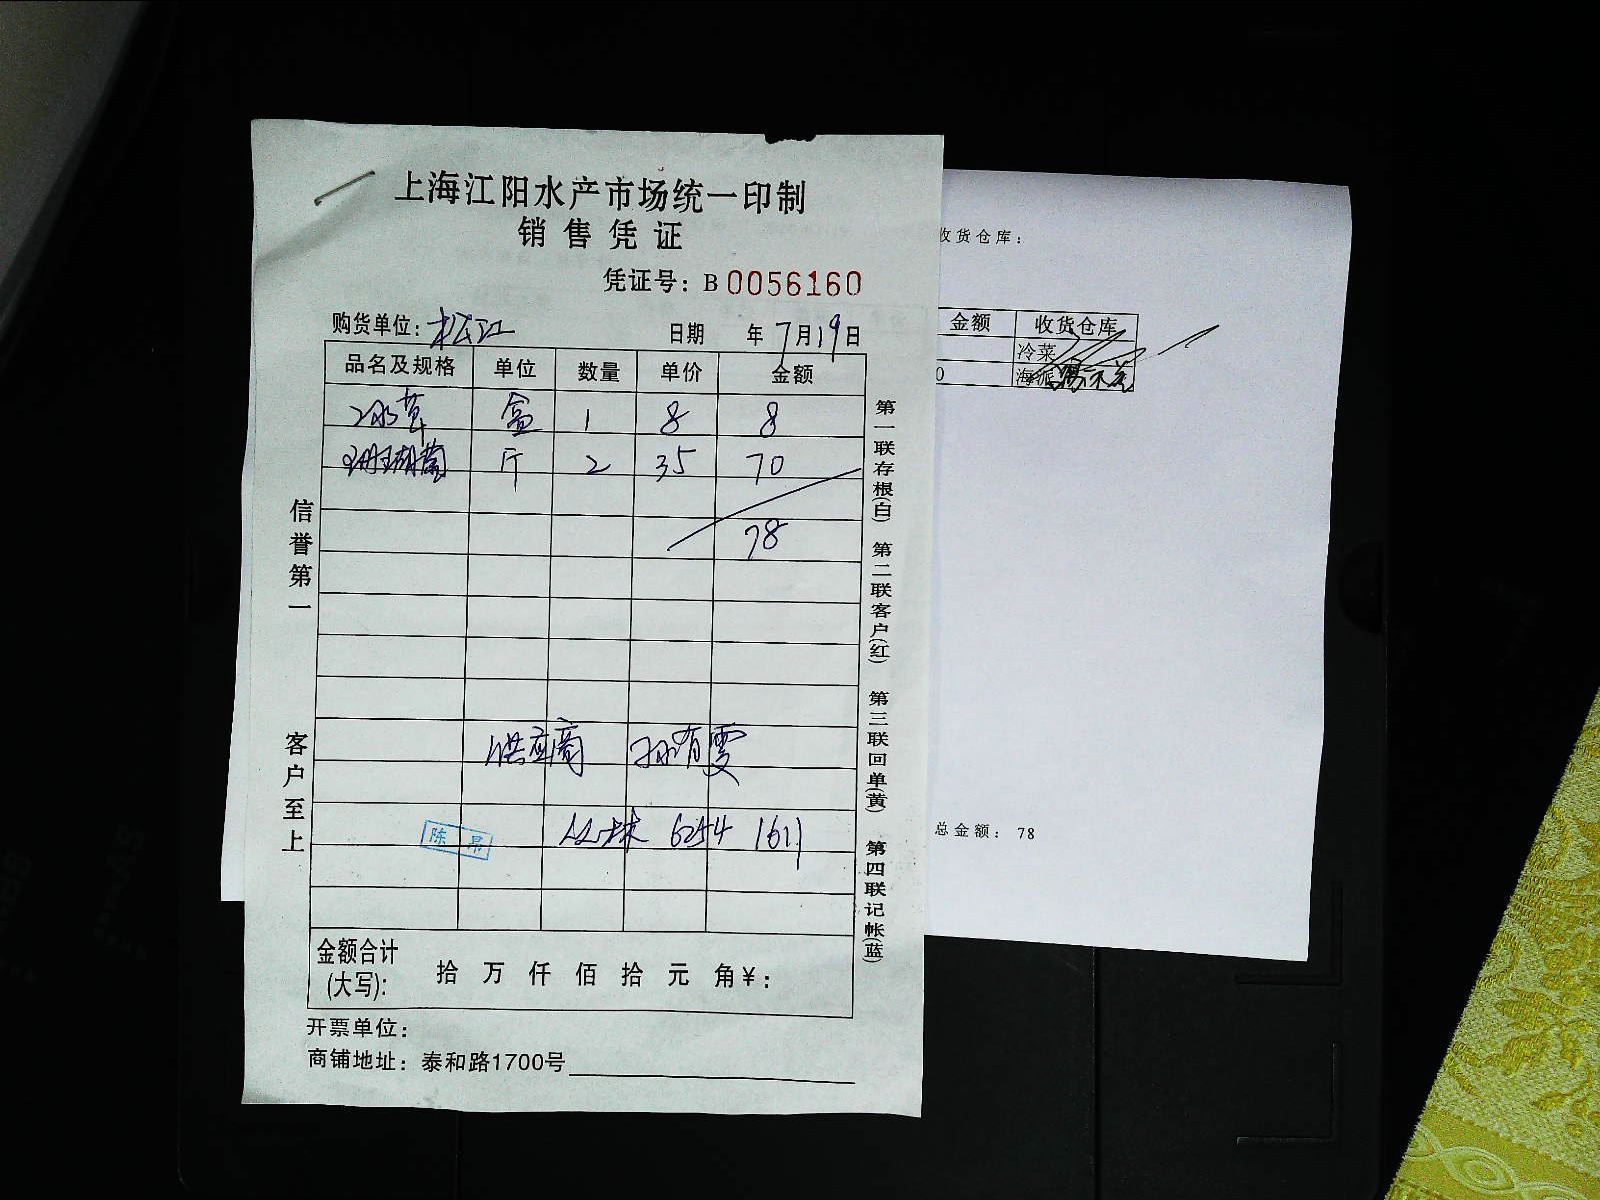 上海江阳水产市场统一印制
销售凭证
凭证号：B 0056160
购货单位：松江 日期 年 7月19日
品名及规格 单位 数量 单价 金额
冰草 盒 1 8 8
珊瑚菌 斤 2 35 70
78
供应商 孙有雯
丛林 6254 1611
陈昂
金额合计(大写)： 拾 万 仟 佰 拾 元 角 ¥：
开票单位：
商铺地址：泰和路1700号
信誉第一
客户至上
第一联存根(白) 第二联客户(红) 第三联回单(黄) 第四联记帐(蓝)
收货仓库：
金额 收货仓库
冷菜
0 海派
总金额：78